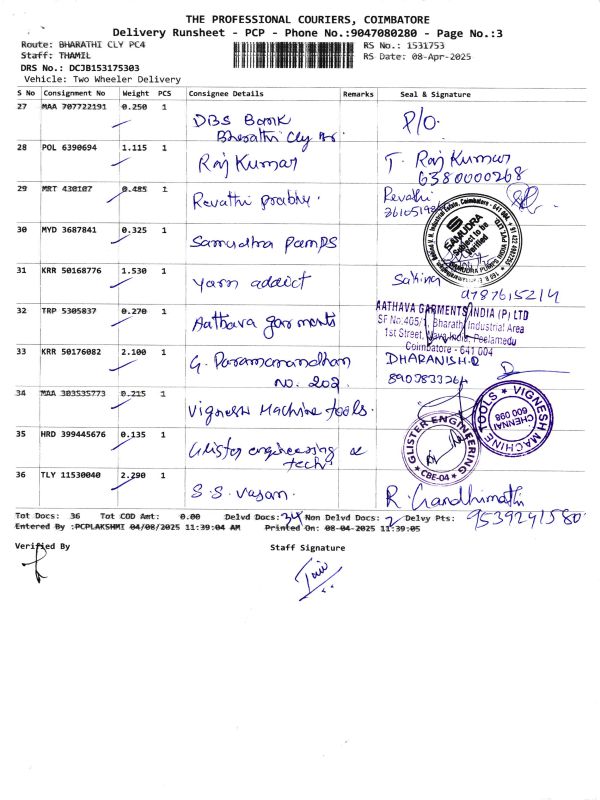 THE PROFESSIONAL COURIERS, COIMBATORE
Delivery Runsheet - PCP - Phone No.:9047080280 - Page No.:3
Route: BHARATHI CLY PC4
RS No.: 1531753
Staff: THAMIL
RS Date: 08-Apr-2025
DRS No.: DCJB153175303
Vehicle: Two Wheeler Delivery
S No Consignment No Weight PCS Consignee Details Remarks Seal & Signature
27 MAA 707722191 0.250 1 DBS Bank P/O.
Bharathi Cly Br.
28 POL 6390694 1.115 1 Raj Kumar T. Raj Kumar
6380000268
29 MRT 430107 0.485 1 Revathi prabhu. Revathi
30 MYD 3687841 0.325 1 Samudra Pumps
SAMUDRA
Subject to be
Verified
31 KRR 50168776 1.530 1 yarn addict
9787615214
32 TRP 5305837 0.270 1 Aathava garments AATHAVA GARMENTS INDIA (P) LTD
SF No.405/1, Bharathi Industrial Area
1st Street, Maya India, Peelamedu
Coimbatore - 641 004
33 KRR 50176082 2.100 1 G. Paramanandhan DHARANISH.D
no. 202. 8903833264
34 MAA 303535773 0.215 1 Vignesh Machine tools.
VIGNESH MACHINE TOOLS
CHENNAI
600 098
35 HRD 399445676 0.135 1 Glister engineering &
tech
GLISTER ENGINEERING
CBE-04
36 TLY 11530040 2.290 1 S.S. Vasan. R. Gandhimathi
9539241580
Tot Docs: 36 Tot COD Amt: 0.00 Delvd Docs: 34 Non Delvd Docs: 2 Delvy Pts:
Entered By :PCPLAKSHMI 04/08/2025 11:39:04 AM Printed On: 08-04-2025 11:39:05
Verified By
Staff Signature